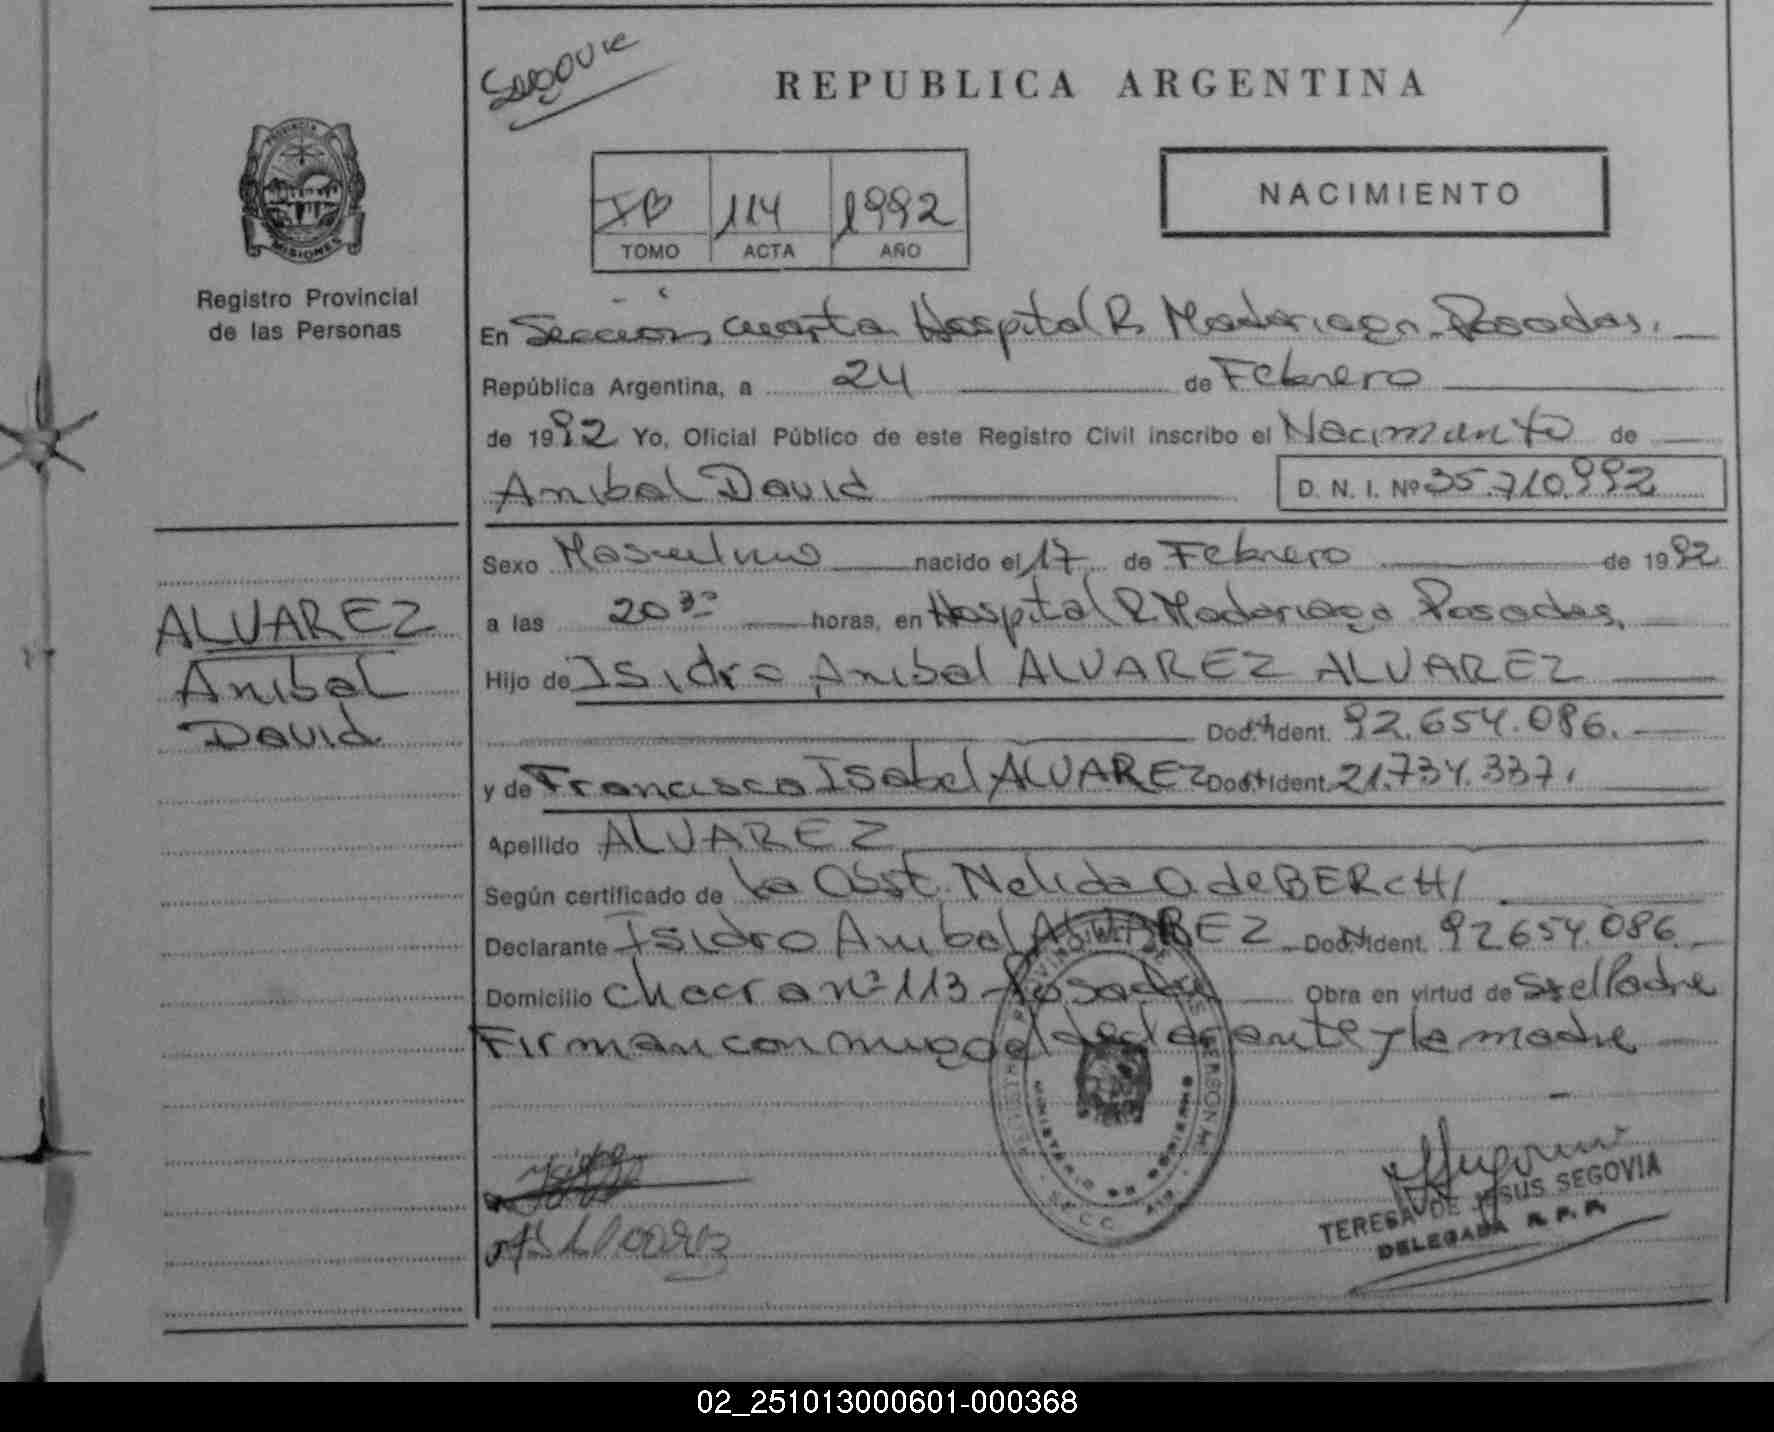 Segovia
REPUBLICA ARGENTINA
PROVINCIA DE
MISIONES
114 1992
TOMO ACTA AÑO
NACIMIENTO
Registro Provincial
de las Personas
En Sección cuarta Hospital R. Madariaga Posadas.
República Argentina, a 24 de Febrero
de 1992 Yo, Oficial Público de este Registro Civil inscribo el Nacimiento de
Anibal David D. N. I. Nº 35.710.992
Sexo Masculino nacido el 17 de Febrero de 1992
a las 20 30 horas, en Hospital R. Madariaga Posadas.
ALVAREZ
Anibal
David
Hijo de Isidro Anibal ALVAREZ ALVAREZ
Doc. Ident. 92.654.086.
y de Francisca Isabel ALVAREZ Doc. Ident. 21.734.337.
Apellido ALVAREZ
Según certificado de la Obst. Nelida O. de BERCHI
Declarante Isidro Anibal ALVAREZ Doc. Ident. 92654.086.
Domicilio Chacra nº 113 Posadas Obra en virtud de Ser el Padre
Firman conmigo el declarante y la madre
REGISTRO PROVINCIAL DE LAS PERSONAS
MINISTERIO DE GOBIERNO
TERESA DE JESUS SEGOVIA
DELEGADA R. P. P.
02_251013000601-000368